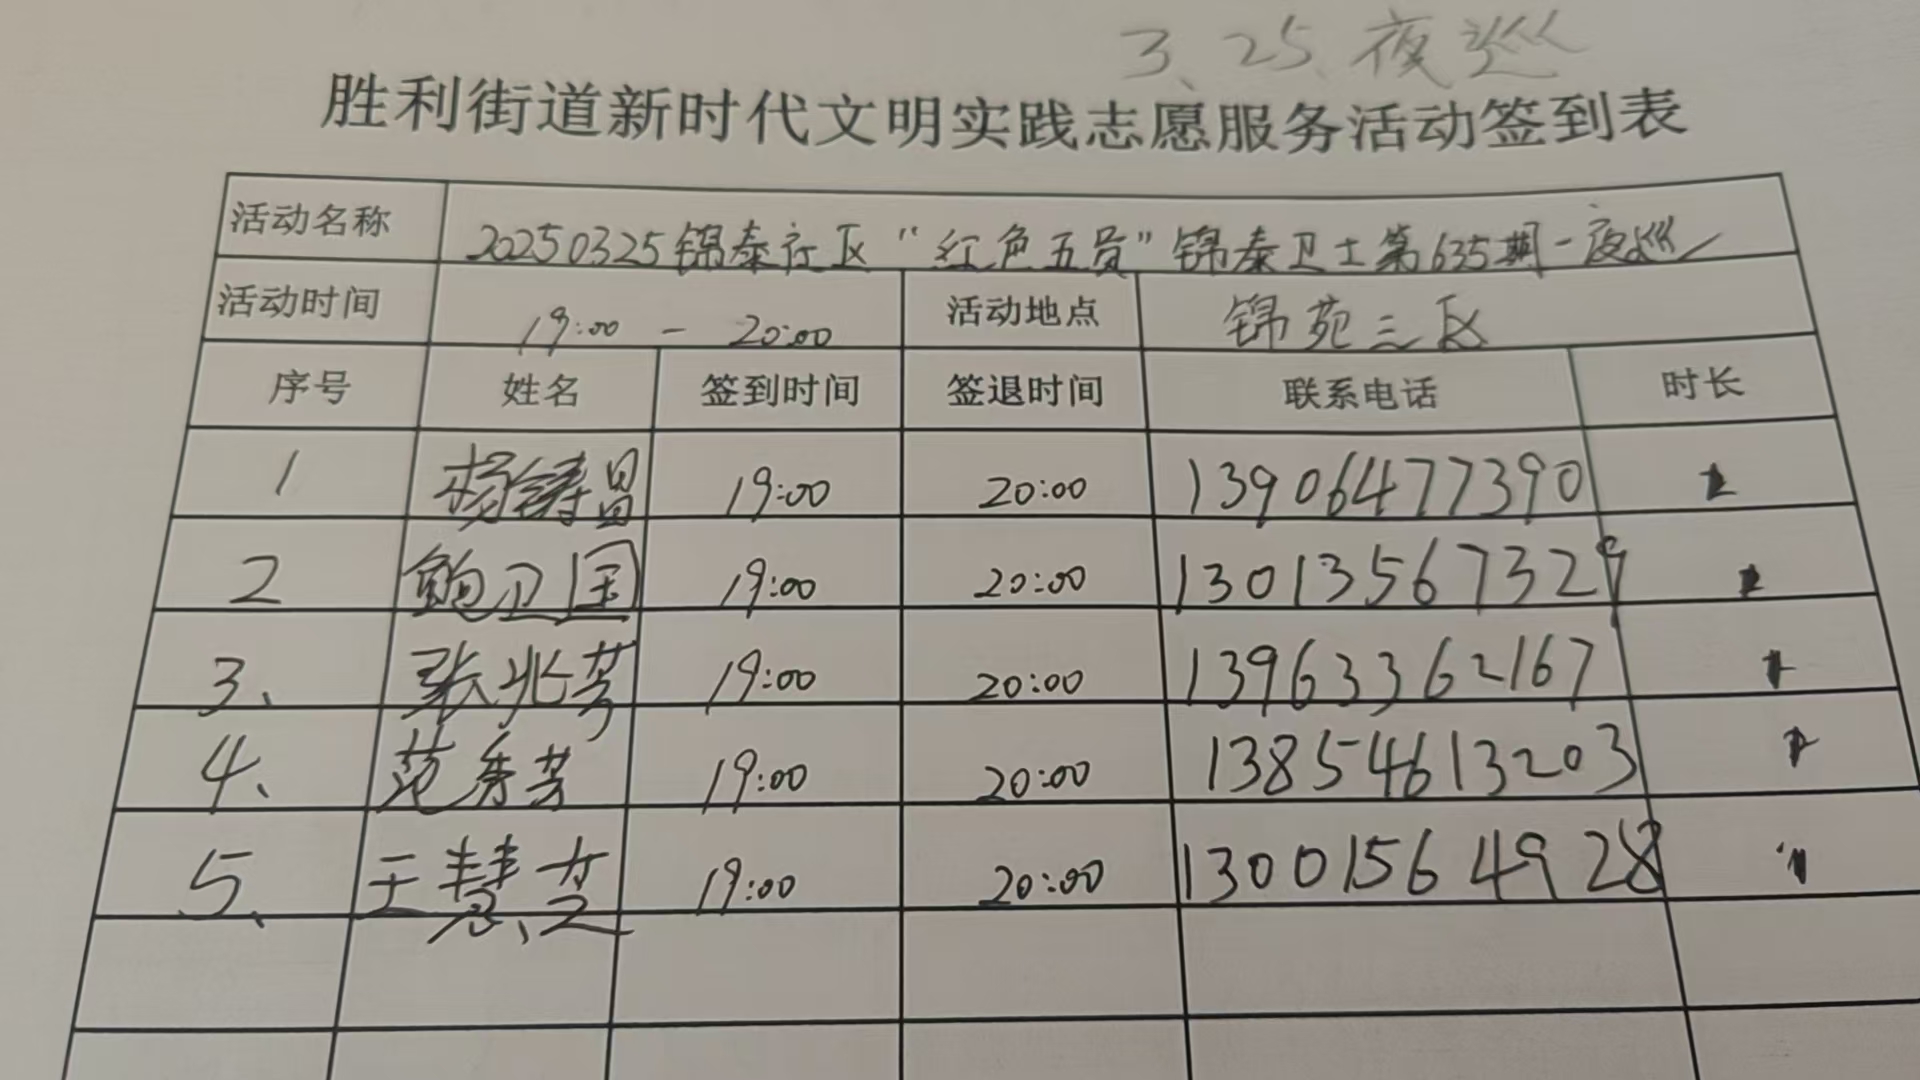 3、25、夜巡
胜利街道新时代文明实践志愿服务活动签到表
活动名称 20250325锦泰社区“红色五员”锦泰卫士第635期-夜巡
活动时间 19:00 - 20:00 活动地点 锦苑三区
序号 姓名 签到时间 签退时间 联系电话 时长
1 杨铸昌 19:00 20:00 13906477390
2 鲍卫国 19:00 20:00 13013567329
3、 张兆芳 19:00 20:00 13963362167
4、 范秀芳 19:00 20:00 13854613203
5、 王慧芝 19:00 20:00 13001564928